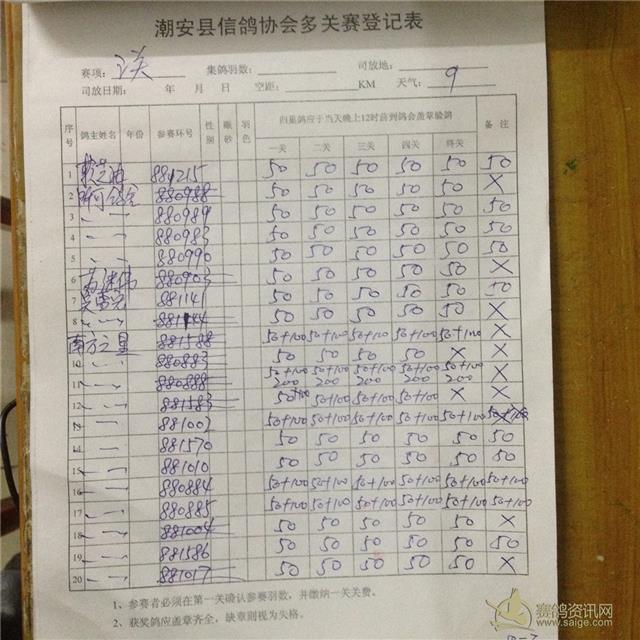 潮安县信鸽协会多关赛登记表
赛项： 集鸽羽数： 司放地：
司放日期： 年 月 日 空距： KM 天气： 9
序号 鸽主姓名 年份 参赛环号 性别 眼砂 羽色 归巢鸽应于当天晚上12时前到鸽会盖章验鸽 备注
一关 二关 三关 四关 终关
1 881215 50 50 50 50 50 50
2 880988 50 50 50 50 50 X
3 880989 50 50 50 50 50 50
4 880983 50 50 50 50 50 50
5 880990 50 50 50 50 50 50
6 880903 50 50 50 50 50 X
7 881141 50 50 50 50 50 50
8 881144 50 50 50 50 50 X
南方之星 881588 50+100 50+100 50+100 50+100 50+100 X
10 880883 50 50 50 50 X X
11 880888 50+100 200 50+100 200 50+100 200 50+100 200 50+100 200 X
12 881583 50+100 50+100 50+100 50+100 X X
13 881002 50+100 50+100 50+100 50+100 50+100
14 881570 50 50 50 50 50 50
15 881010 50 50 50 50 50 50
16 880884 50+100 50+100 50+100 50+100 50+100 50+100
17 880885 50+100 50+100 50+100 50+100 50+100 50+100
18 881004 50 50 50 50 50 X
19 881586 50 50 50 50 50 50
20 881017 50 50 50 50 50 X
1、参赛者必须在第一关确认参赛羽数，并缴纳一关关费。
2、获奖鸽应盖章齐全，缺章则视为失格。
赛鸽资讯网
www.saige.com